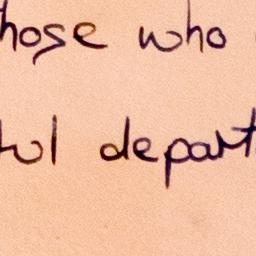 hose who
tul depart